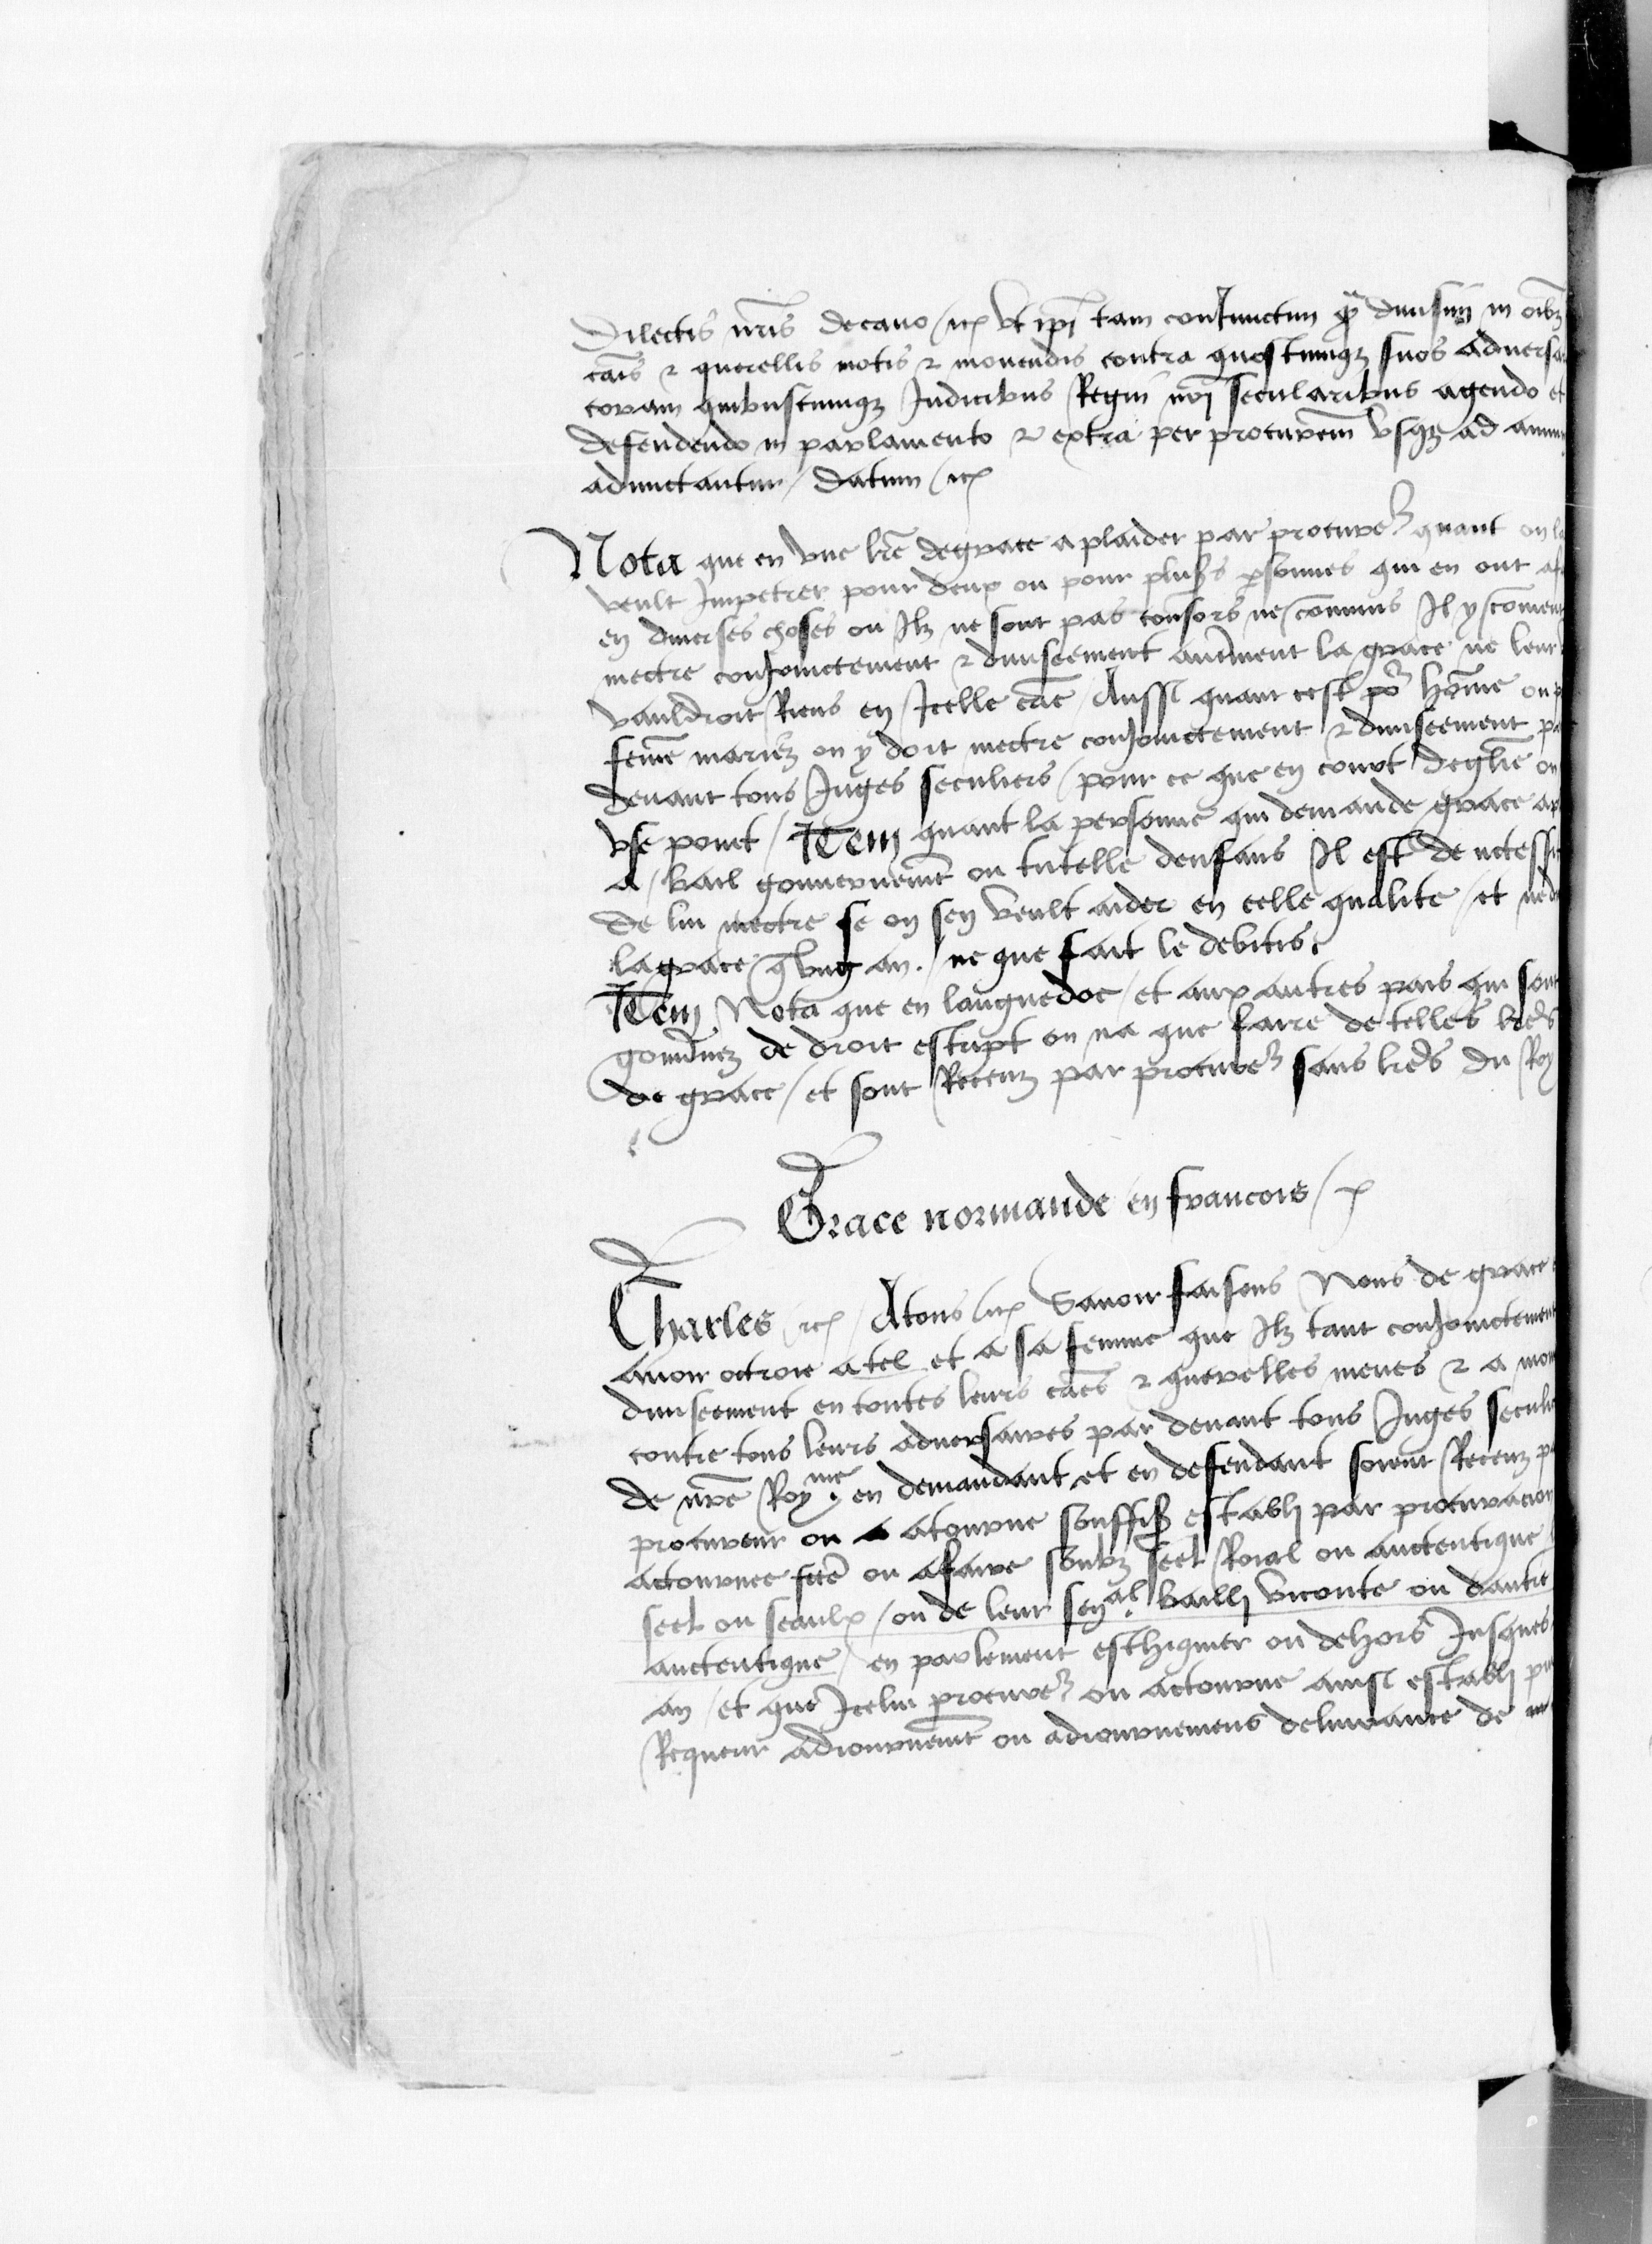 Dilectis nr̄is decano / ⁊c̄ Vt ip̄i tam coniunctim q̄ diuisim in oībꝫ
cāis ⁊ querellis motis ⁊ mouendis contra quoscumqꝫ suos aduersa
coram quibuscumqꝫ Iudicibus Regni nr̄i secularibus agendo et
defendendo in parlamento ⁊ extra per procur̄em vsqꝫ ad annu
admictantur / datum / ⁊c̄
Nota que en vne lr̄e de grace a plaider par procure᷑ quant on la
veult Impetrer pour deux ou pour plus᷑s p̄sonnes qui en ont af
en diuerses choses ou Ilz ne sont pas consors ne / commūs Il y / conuient
mectre conJoinctement ⁊ diuiseement autr̄ment la grace ne leur
vauldroit Riens en Icelle cāe / Aussi quant cest po᷑ hōme ou
fem̄e mariez on y doit mectre conJoinctement ⁊ diuiseement pa
deuant tous Iuges seculiers / pour ce que en court deglīe on
vse point / Item quant la personne qui demande grace a
a / bail gouuernemēt ou tutelle denfans Il est de necessi
de lui mectre se on sen veult aider en celle qualite / et ne d
la grace q̄ vng an / ne que fait le debitis
Item Nota que en languedoc / et aux autres pais qui sont
gouūnez de droit escript on na que faire de telles lr̄es
de grace / et sont Receuz par procure᷑ sans lr̄es du Roy
Grace normande en francois /
Charles / ⁊c̄ / A tous / ⁊c̄ Sauoir faisons Nous de grace
auoir octroie a tel et a sa femme que Ilz tant conJoinctement
diuiseement en toutes leurs cāes ⁊ querelles meues ⁊ a mou
contre tous leurs aduersaires par deuant tous Iuges seculi
de nr̄e Royme en demandant et en defendant soient Receuz p
procureur ou a atourne souffiß establi par procuracion
actournee fcē ou a faire soubz seel Roial ou auctentique
seel ou seaulx / ou de leur senal bailli viconte ou dautre
auctentique / en parlement eschiquier ou dehors Jusques
an / et que Icelui procure᷑ ou actourne ainsi establi p
Requerir adiournemēt ou adiournemens deliurance de